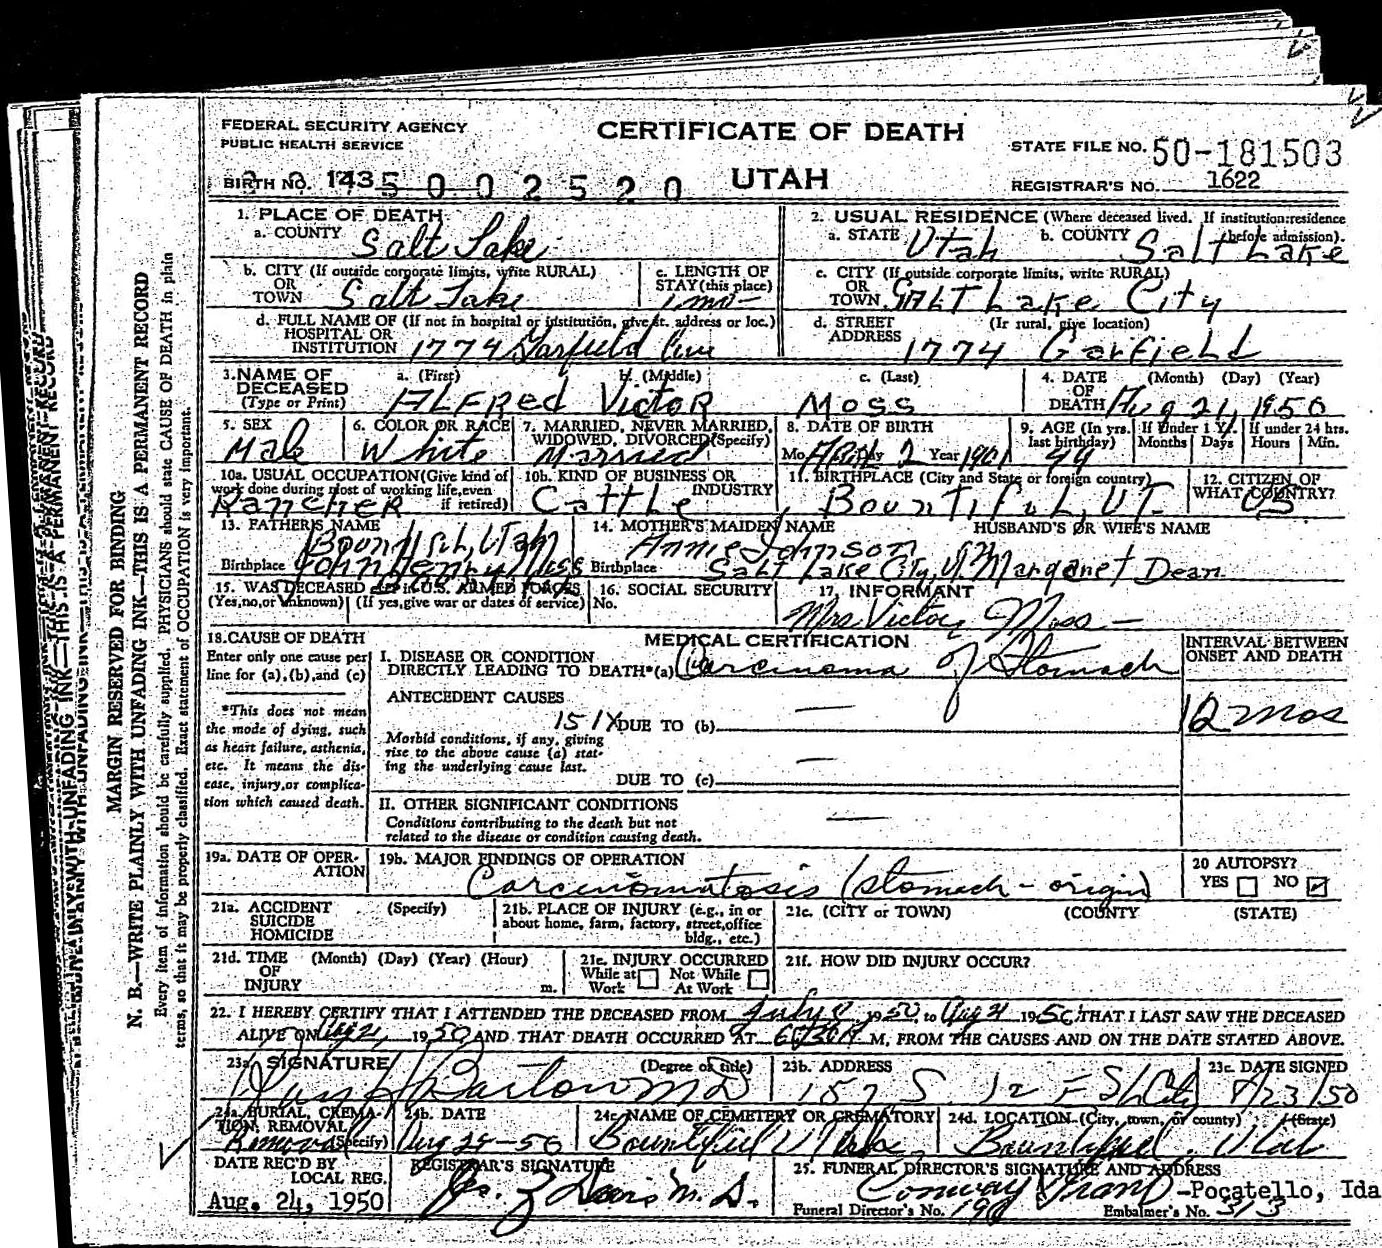 FEDERAL SECURITY AGENCY
PUBLIC HEALTH SERVICE
CERTIFICATE OF DEATH
UTAH
STATE FILE NO. 50-181503
BIRTH NO. 143 5 0 0 2 5 2 0
REGISTRAR'S NO. 1622
1. PLACE OF DEATH
a. COUNTY Salt Lake
2. USUAL RESIDENCE (Where deceased lived. If institution: residence before admission).
a. STATE Utah b. COUNTY Salt Lake
b. CITY (If outside corporate limits, write RURAL) OR TOWN Salt Lake
c. LENGTH OF STAY (this place) 1 mo-
c. CITY (If outside corporate limits, write RURAL) OR TOWN SALT Lake City
d. FULL NAME OF (If not in hospital or institution, give st. address or loc.) HOSPITAL OR INSTITUTION 1774 Garfield Ave
d. STREET ADDRESS (If rural, give location) 1774 Garfield
3. NAME OF DECEASED (Type or Print)
a. (First) ALFRed b. (Middle) VictoR c. (Last) Moss
4. DATE OF DEATH (Month) (Day) (Year) Aug 21, 1950
5. SEX Male
6. COLOR OR RACE White
7. MARRIED, NEVER MARRIED, WIDOWED, DIVORCED (Specify) Married
8. DATE OF BIRTH Mo. Day 2 Year 1901
9. AGE (In yrs. last birthday) 49
If Under 1 Yr. Months Days
If under 24 hrs. Hours Min.
10a. USUAL OCCUPATION (Give kind of work done during most of working life, even if retired) RancHeR
10b. KIND OF BUSINESS OR INDUSTRY Cattle
11. BIRTHPLACE (City and State or foreign country) Bountiful, UT.
12. CITIZEN OF WHAT COUNTRY? US
13. FATHER'S NAME Bountiful, Utah
Birthplace John Henry Moss
14. MOTHER'S MAIDEN NAME Annie Johnson
Birthplace Salt Lake City, U.
HUSBAND'S OR WIFE'S NAME
Margaret Dean
15. WAS DECEASED EVER IN U.S. ARMED FORCES
(Yes, no, or unknown) (If yes, give war or dates of service)
16. SOCIAL SECURITY No.
17. INFORMANT
Mrs Victor Moss -
18. CAUSE OF DEATH
Enter only one cause per line for (a), (b), and (c)
*This does not mean the mode of dying, such as heart failure, asthenia, etc. It means the disease, injury, or complication which caused death.
MEDICAL CERTIFICATION
I. DISEASE OR CONDITION DIRECTLY LEADING TO DEATH* (a) Carcinoma of Stomach
INTERVAL BETWEEN ONSET AND DEATH
12 mos
ANTECEDENT CAUSES
151X DUE TO (b) —
Morbid conditions, if any, giving rise to the above cause (a) stating the underlying cause last.
DUE TO (c) —
II. OTHER SIGNIFICANT CONDITIONS
Conditions contributing to the death but not related to the disease or condition causing death. —
19a. DATE OF OPERATION
19b. MAJOR FINDINGS OF OPERATION
Carcinomatosis (stomach - origin)
20 AUTOPSY?
YES NO
21a. ACCIDENT SUICIDE HOMICIDE (Specify)
21b. PLACE OF INJURY (e.g., in or about home, farm, factory, street, office bldg., etc.)
21c. (CITY or TOWN) (COUNTY) (STATE)
21d. TIME OF INJURY (Month) (Day) (Year) (Hour) m.
21e. INJURY OCCURRED
While at Work Not While At Work
21f. HOW DID INJURY OCCUR?
22. I HEREBY CERTIFY THAT I ATTENDED THE DECEASED FROM July 1950, to Aug 21 1950 THAT I LAST SAW THE DECEASED
ALIVE ON Aug 21, 1950 AND THAT DEATH OCCURRED AT M, FROM THE CAUSES AND ON THE DATE STATED ABOVE.
23a. SIGNATURE (Degree or title) Barlow MD
23b. ADDRESS 157 S. 12 E SL City
23c. DATE SIGNED 8/23/50
24a. BURIAL, CREMATION, REMOVAL (Specify) Removal
24b. DATE Aug 25-50
24c. NAME OF CEMETERY OR CREMATORY Bountiful Utah
24d. LOCATION (City, town, or county) (State) Bountiful, Utah
DATE REC'D BY LOCAL REG. Aug. 24, 1950
REGISTRAR'S SIGNATURE
Davis M.D.
25. FUNERAL DIRECTOR'S SIGNATURE AND ADDRESS
Conway -Pocatello, Ida
Funeral Director's No. 190 Embalmer's No. 313
MARGIN RESERVED FOR BINDING
N. B.—WRITE PLAINLY WITH UNFADING INK—THIS IS A PERMANENT RECORD
Every item of information should be carefully supplied. PHYSICIANS should state CAUSE OF DEATH in plain
terms, so that it may be properly classified. Exact statement of OCCUPATION is very important.